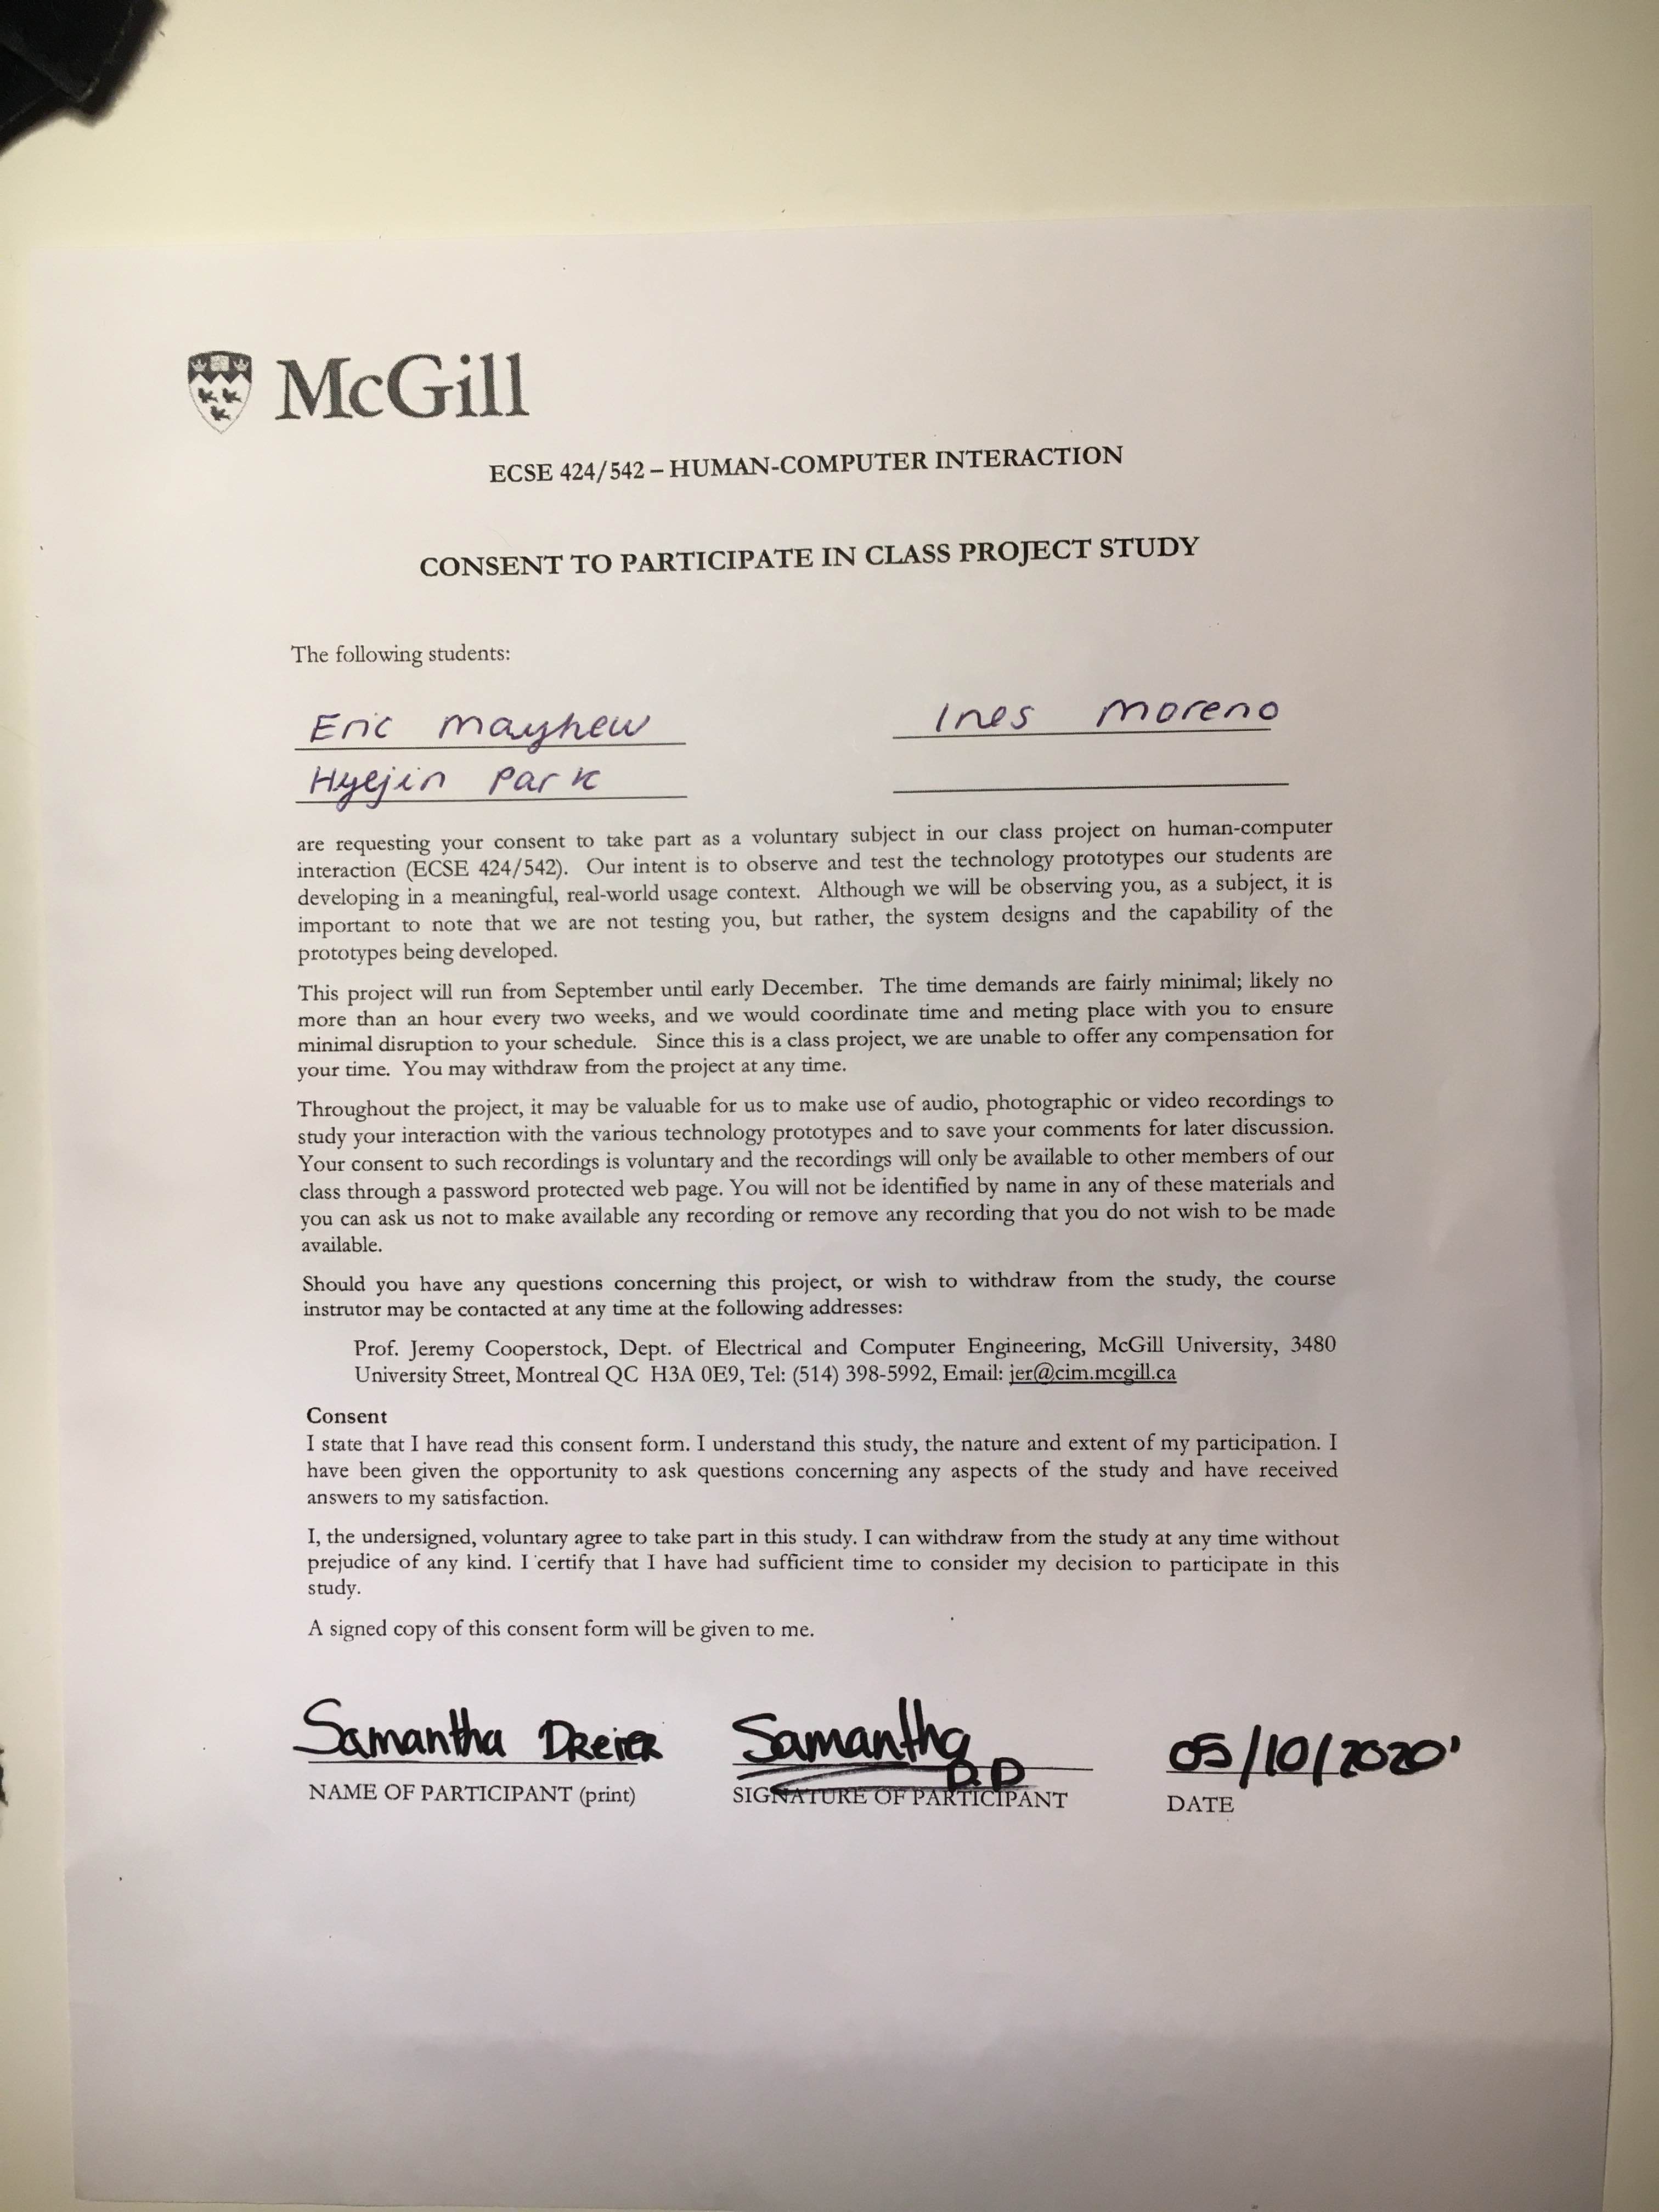 McGill
ECSE 424/542 – HUMAN-COMPUTER INTERACTION
CONSENT TO PARTICIPATE IN CLASS PROJECT STUDY
The following students:
Eric Mayhew Ines Moreno
Hyejin Park
are requesting your consent to take part as a voluntary subject in our class project on human-computer
interaction (ECSE 424/542). Our intent is to observe and test the technology prototypes our students are
developing in a meaningful, real-world usage context. Although we will be observing you, as a subject, it is
important to note that we are not testing you, but rather, the system designs and the capability of the
prototypes being developed.
This project will run from September until early December. The time demands are fairly minimal; likely no
more than an hour every two weeks, and we would coordinate time and meting place with you to ensure
minimal disruption to your schedule. Since this is a class project, we are unable to offer any compensation for
your time. You may withdraw from the project at any time.
Throughout the project, it may be valuable for us to make use of audio, photographic or video recordings to
study your interaction with the various technology prototypes and to save your comments for later discussion.
Your consent to such recordings is voluntary and the recordings will only be available to other members of our
class through a password protected web page. You will not be identified by name in any of these materials and
you can ask us not to make available any recording or remove any recording that you do not wish to be made
available.
Should you have any questions concerning this project, or wish to withdraw from the study, the course
instrutor may be contacted at any time at the following addresses:
Prof. Jeremy Cooperstock, Dept. of Electrical and Computer Engineering, McGill University, 3480
University Street, Montreal QC H3A 0E9, Tel: (514) 398-5992, Email: jer@cim.mcgill.ca
Consent
I state that I have read this consent form. I understand this study, the nature and extent of my participation. I
have been given the opportunity to ask questions concerning any aspects of the study and have received
answers to my satisfaction.
I, the undersigned, voluntary agree to take part in this study. I can withdraw from the study at any time without
prejudice of any kind. I certify that I have had sufficient time to consider my decision to participate in this
study.
A signed copy of this consent form will be given to me.
Samantha Dreier Samantha D.D 05/10/2020
NAME OF PARTICIPANT (print) SIGNATURE OF PARTICIPANT DATE